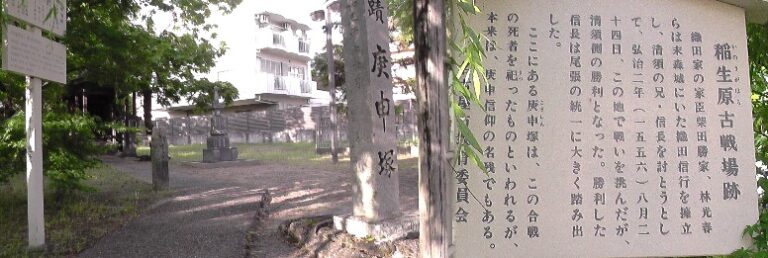 蹟 庚申塚
稲生原古戦場跡
いのうがはら
織田家の家臣柴田勝家、林光春
らは末森城にいた織田信行を擁立
し、清須の兄・信長を討とうとし
て、弘治二年（一五五六）八月二
十四日、この地で戦いを挑んだが、
清須側の勝利となった。勝利した
信長は尾張の統一に大きく踏み出
した。
ここにある庚申塚は、この合戦
の死者を祀ったものといわれるが、
本来は、庚申信仰の名残でもある。
育委員会